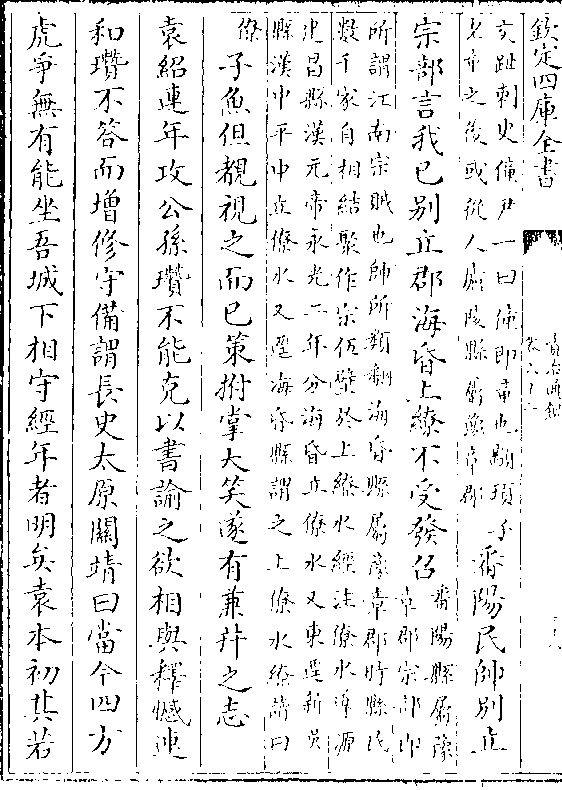 欽定四庫全書
交趾刺史僮尹一曰僮即童也顓頊子
老童之後或從人 縣屬豫章郡
鄱陽民帥別立
宗部言我已別立郡海昏上繚不受發召
鄱陽縣屬豫
章郡宗部即
所謂江南宗賊也帥所類翻海昏縣屬豫章郡時縣民
數千家自相結聚作宗伍壁於上繚水經注僚水導源
建昌縣漢元帝永光二年分海昏立僚水又東逕新吳
縣漢中平中立僚水又逕海昏縣謂之上僚水繚讀曰
僚
子魚但覩視之而已策拊掌大笑遂有兼幷之志
袁紹連年攻公孫瓚不能克以書諭之欲相與釋憾連
和瓚不答而增修守備謂長史太原關靖曰當今四方
虎爭無有能坐吾城下相守經年者明矣袁本初其若